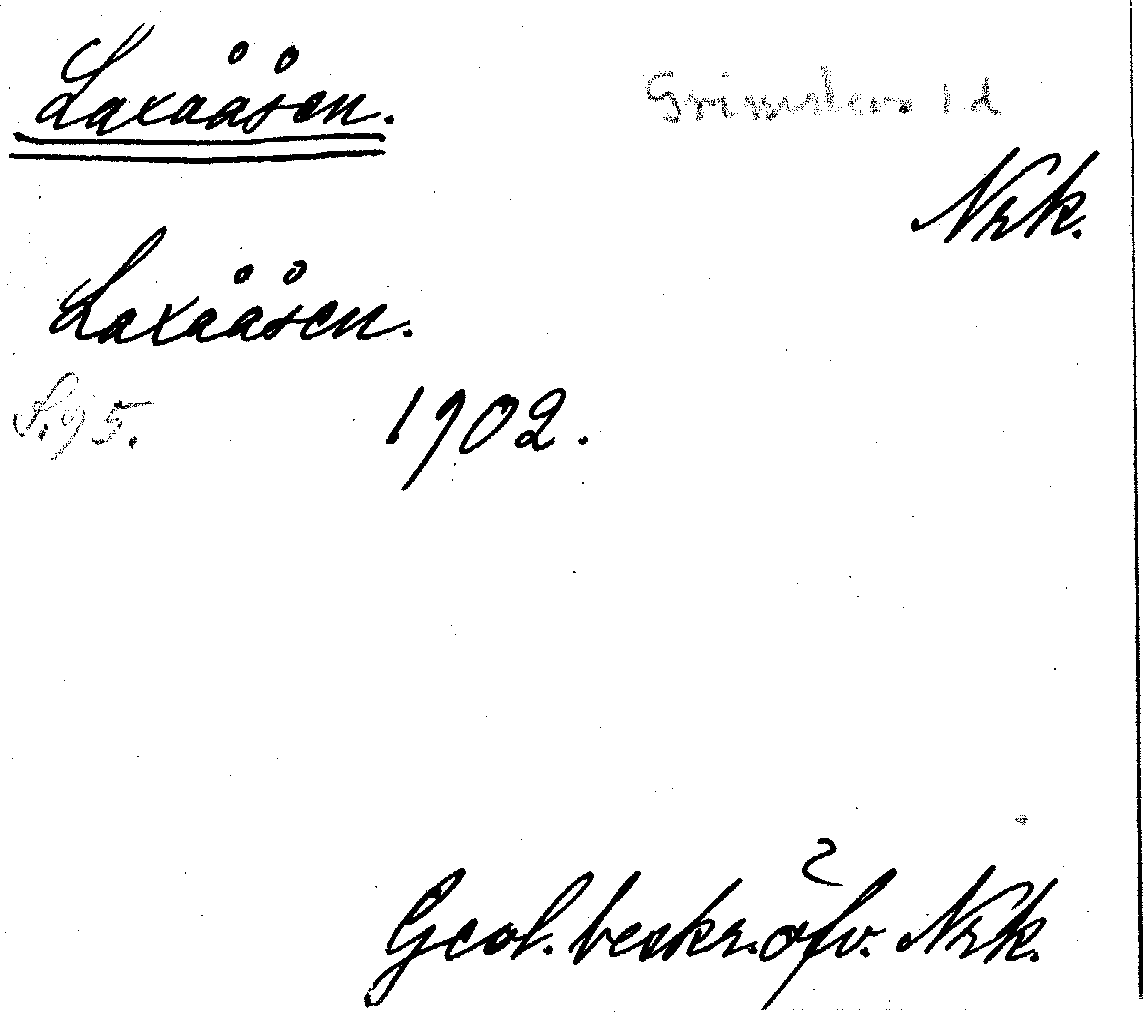 Laxååsen.
Grimstens hd
Nrk.
Laxååsen.
S. 95. 1902.
Geol. beskr. öfv. Nrk.